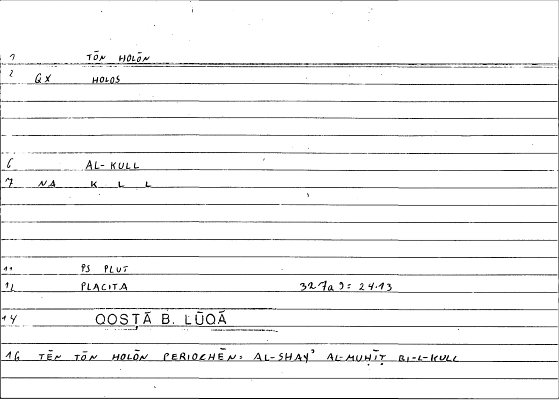 1 TŌN HOLŌN
2 QX HOLOS
6 AL-KULL
7 NA K L L
11 PS PLUT
12 PLACITA 327a9 = 24.13
14 QOSṬĀ B. LŪQĀ
16 TĒN TŌN HOLŌN PERIOCHĒN: AL-SHAYʾ AL-MUḤĪṬ BI-L-KULL